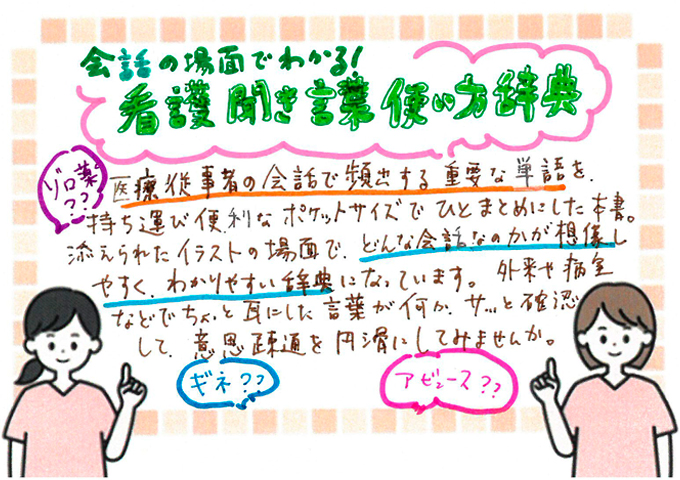 会話の場面でわかる!
看護 聞き言葉 使い方辞典
ゾロ薬
??
医療従事者の会話で頻出する重要な単語を、
持ち運び便利なポケットサイズでひとまとめにした本書。
添えられたイラストの場面で、どんな会話なのかが想像し
やすく、わかりやすい辞典になっています。 外来や病室
などでちょっと耳にした言葉が何か、サッと確認
して、意思疎通を円滑にしてみませんか。
ギネ??
アビュース??